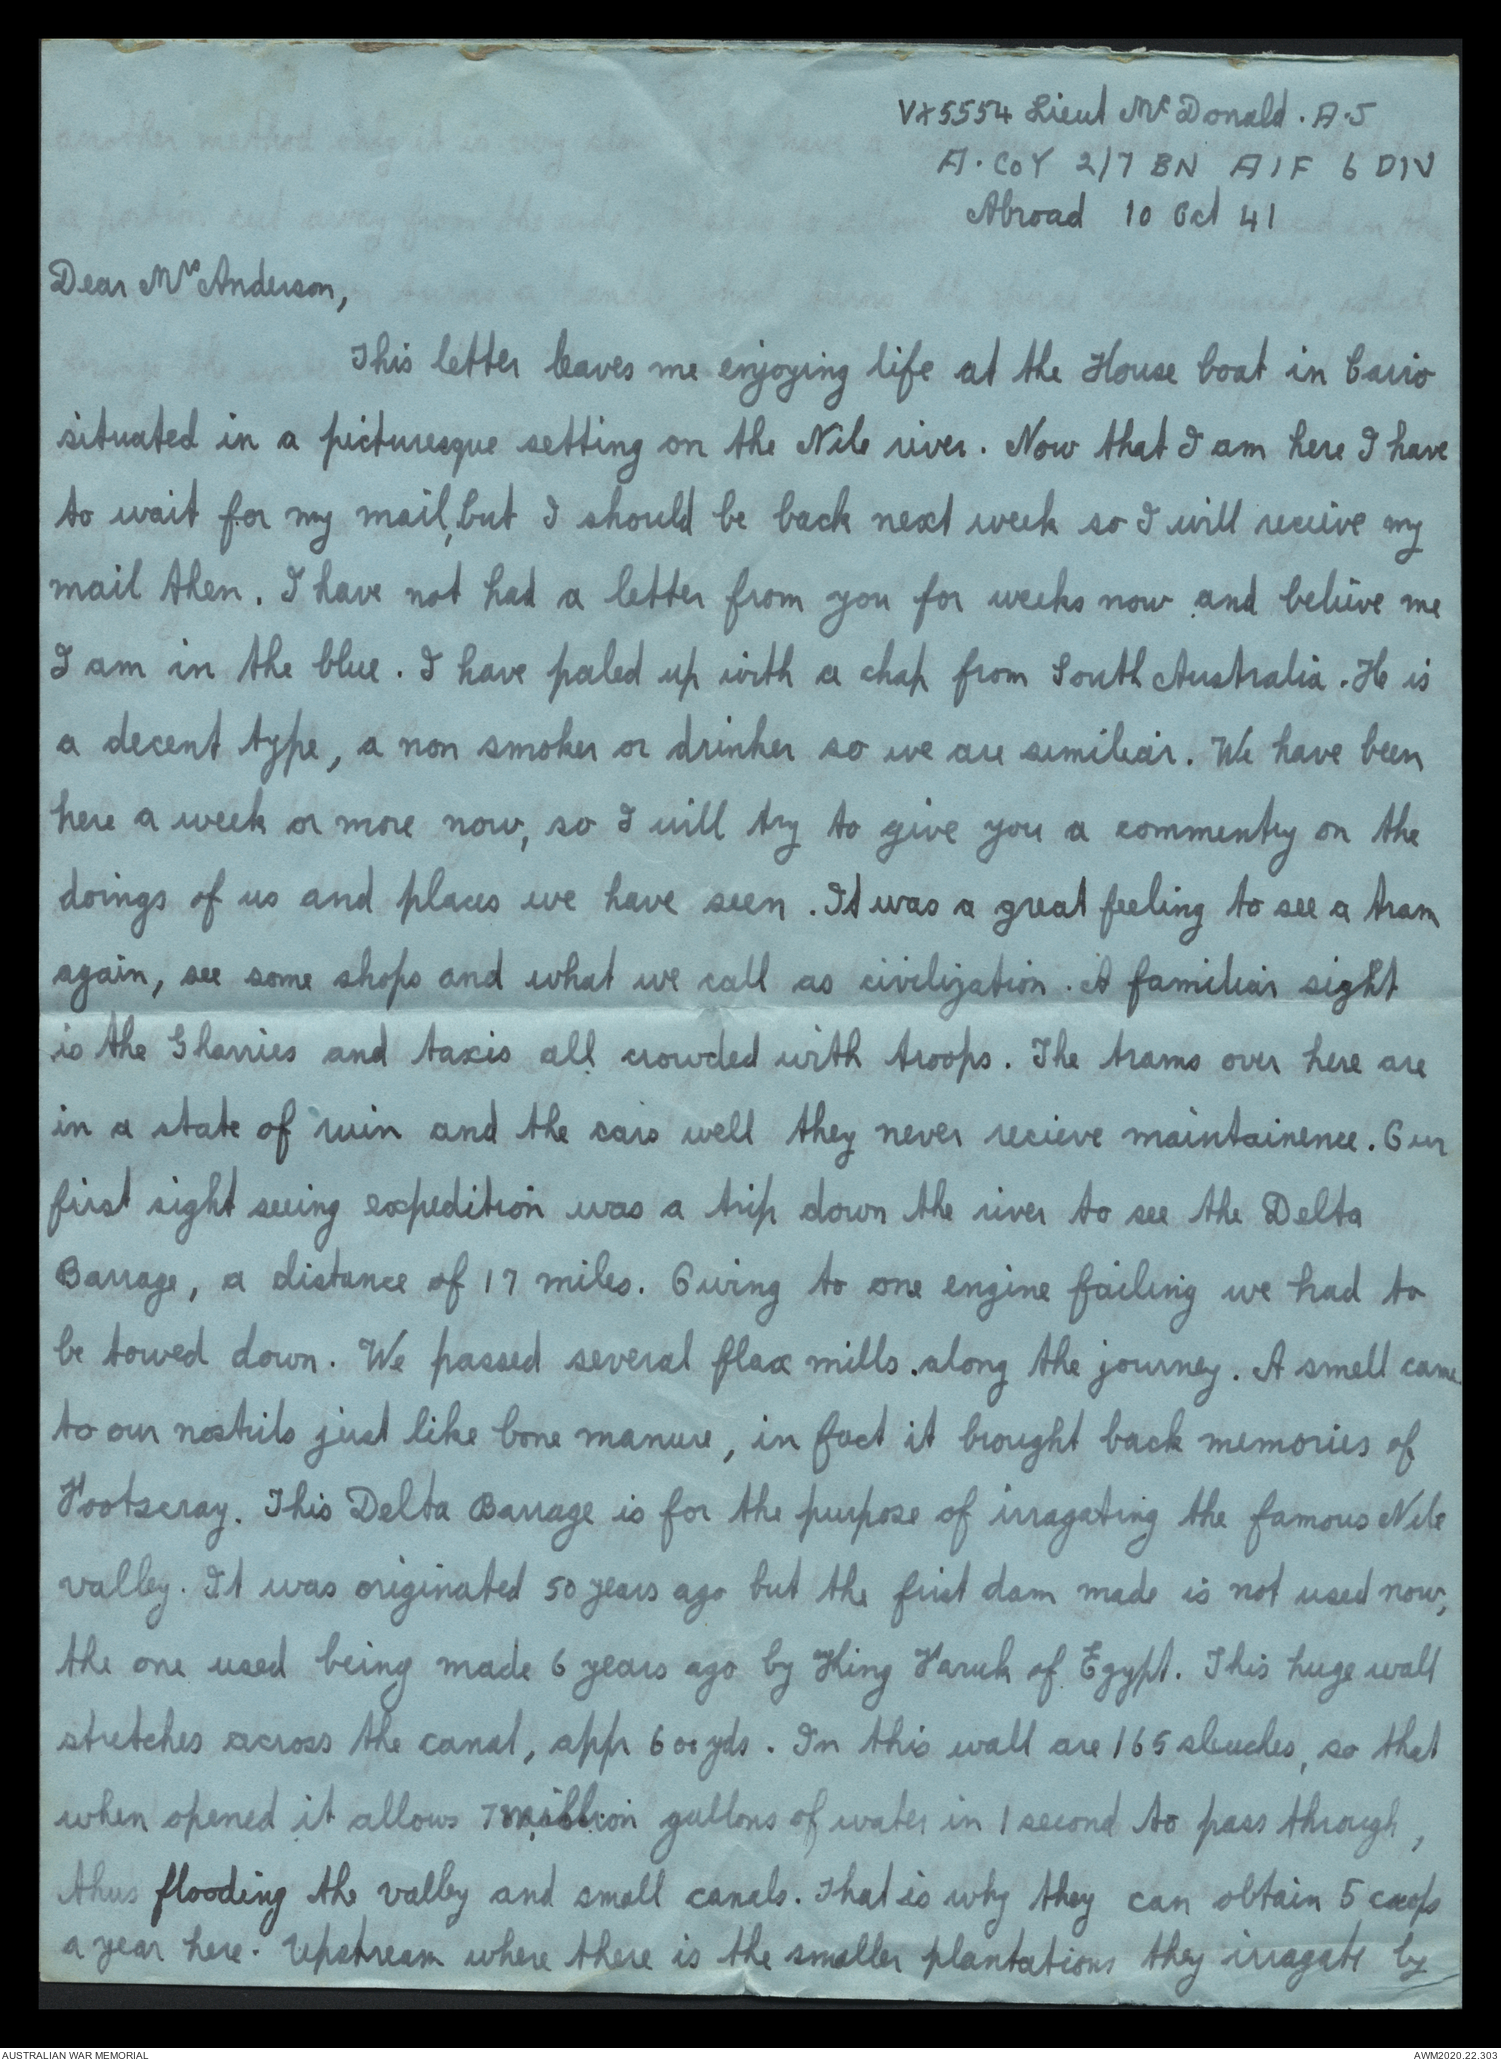 VX5554 Lieut McDonald. A.J
A. COY 2/7 BN AIF 6 DIV
Abroad 10 Oct 41
Dear Mrs Anderson,
This letter leaves me enjoying life at the House boat in Cario
situated in a picturesque setting on the Nile river. Now that I am here I have
to wait for my mail, but I should be back next week so I will recieve my
mail then. I have not had a letter from you for weeks now and believe me
I am in the blue. I have paled up with a chap from South Australia. He is
a decent type, a non smoker or drinker so we are similiar. We have been
here a week or more now, so I will try to give you a commentry on the
doings of us and places we have seen. It was a great feeling to see a tram
again, see some shops and what we call as civilization. A familiar sight
is the Gharries and taxis all crowded with troops. The trams over here are
in a state of ruin and the cars well they never recieve maintainence. Our
first sight seeing expedition was a trip down the river to see the Delta
Barrage, a distance of 17 miles. Owing to one engine failing we had to
be towed down. We passed several flax mills along the journey. A smell came
to our nostrils just like bone manure, in fact it brought back memories of
Footscray. This Delta Barrage is for the purpose of irragating the famous Nile
valley. It was originated 50 years ago but the first dam made is not used now,
the one used being made 6 years ago by King Faruk of Egypt. This huge wall
stretches across the canal, appr 600 yds. In this wall are 165 sleuches, so that
when opened it allows 7 million gallons of water in 1 second to pass through,
thus flooding the valley and small canals. That is why they can obtain 5 crops
a year here. Upstream where there is the smaller plantations they irragate by
AUSTRALIAN WAR MEMORIAL
AWM2020.22.303